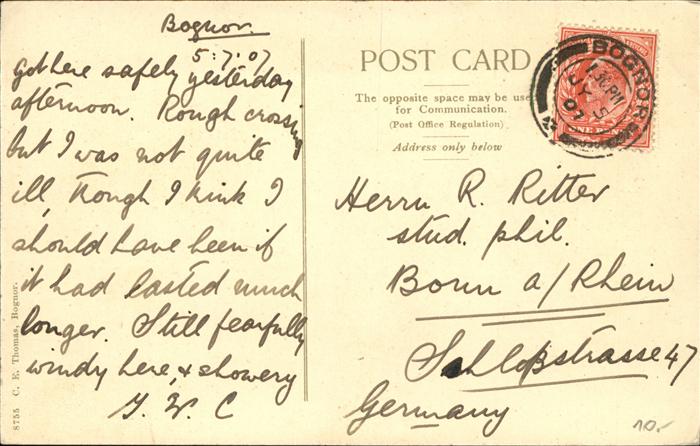 Bognor.
5.7.07
Got here safely yesterday
afternoon. Rough crossing
but I was not quite
ill, though I think I
should have been if
it had lasted much
longer. Still fearfully
windy here, & showery
8755 C. E. Thomas, Bognor.
POST CARD
The opposite space may be used
for Communication.
(Post Office Regulation)
Address only below
BOGNOR
1.30 PM
JY 5
07
ONE PENNY
Herrn R. Ritter
stud. phil.
Bonn a/Rhein
Schloßstrasse 47
Germany
10.-